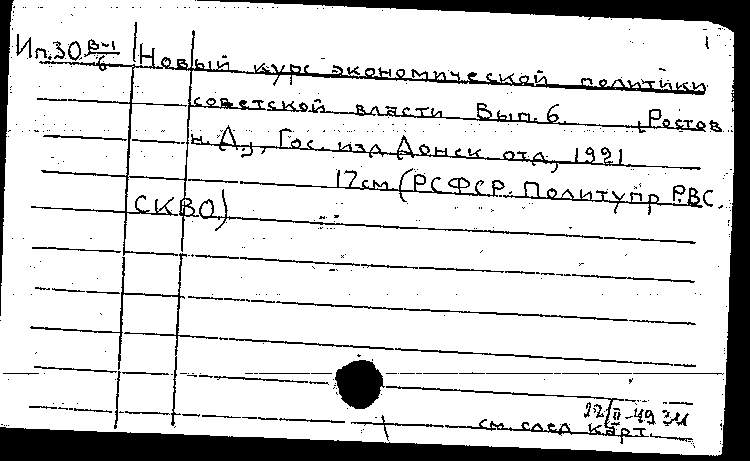 1
Ип.30 В-1/6 Новый курс экономической политики
советской власти Вып. 6. [Ростов
н. Д.], Гос. изд Донск. отд, 1921.
17см (РСФСР. Политупр РВС.
СКВО)
22/II-49 ЗИ
см. след карт.